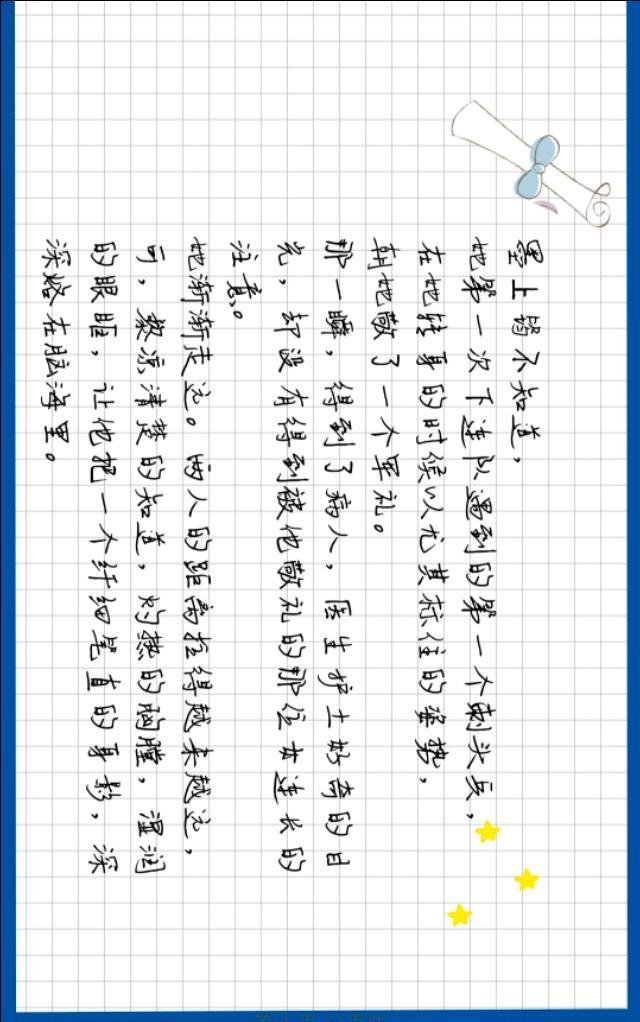 墨上筠不知道，
她第一次下连队遇到的第一个刺头兵，
在她转身的时候以尤其标住的姿势，
朝她敬了一个军礼。
那一瞬，得到了病人，医生护士好奇的目
光，却没有得到被他敬礼的那位女连长的
注意。
她渐渐走远。两人的距离拉得越来越远，
可，黎凉清楚的知道，灼热的胸膛，湿润
的眼眶，让他把一个纤细笔直的身影，深
深烙在脑海里。